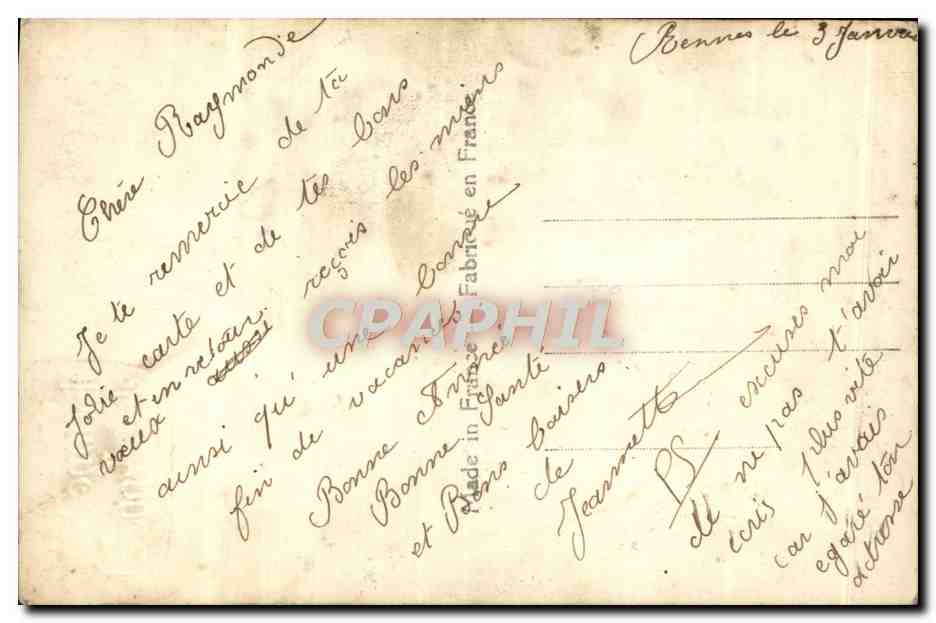 Rennes le 3 Janvier
Chère Raymonde
Je te remercie de ta
jolie carte et de tes bons
vœux et en retour aussi reçois les miens
ainsi qu'une bonne
fin de vacances
Bonne Année
Bonne Santé
et Bons baisers
de
Jeannette
PS excuses moi
de ne pas t'avoir
écris plus vite
car j'avais
egaré ton
adresse
Made in France Fabriqué en France
CPAPHIL